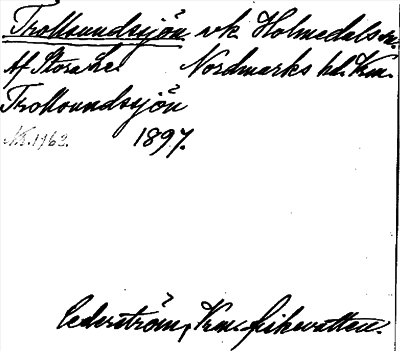 Trollsundsjön vk Holmedals sn.
Af Stora Le. Nordmarks hd. Vrm.
Trollsundsjön
1897.
Cederström, Vrm. fiskevatten.